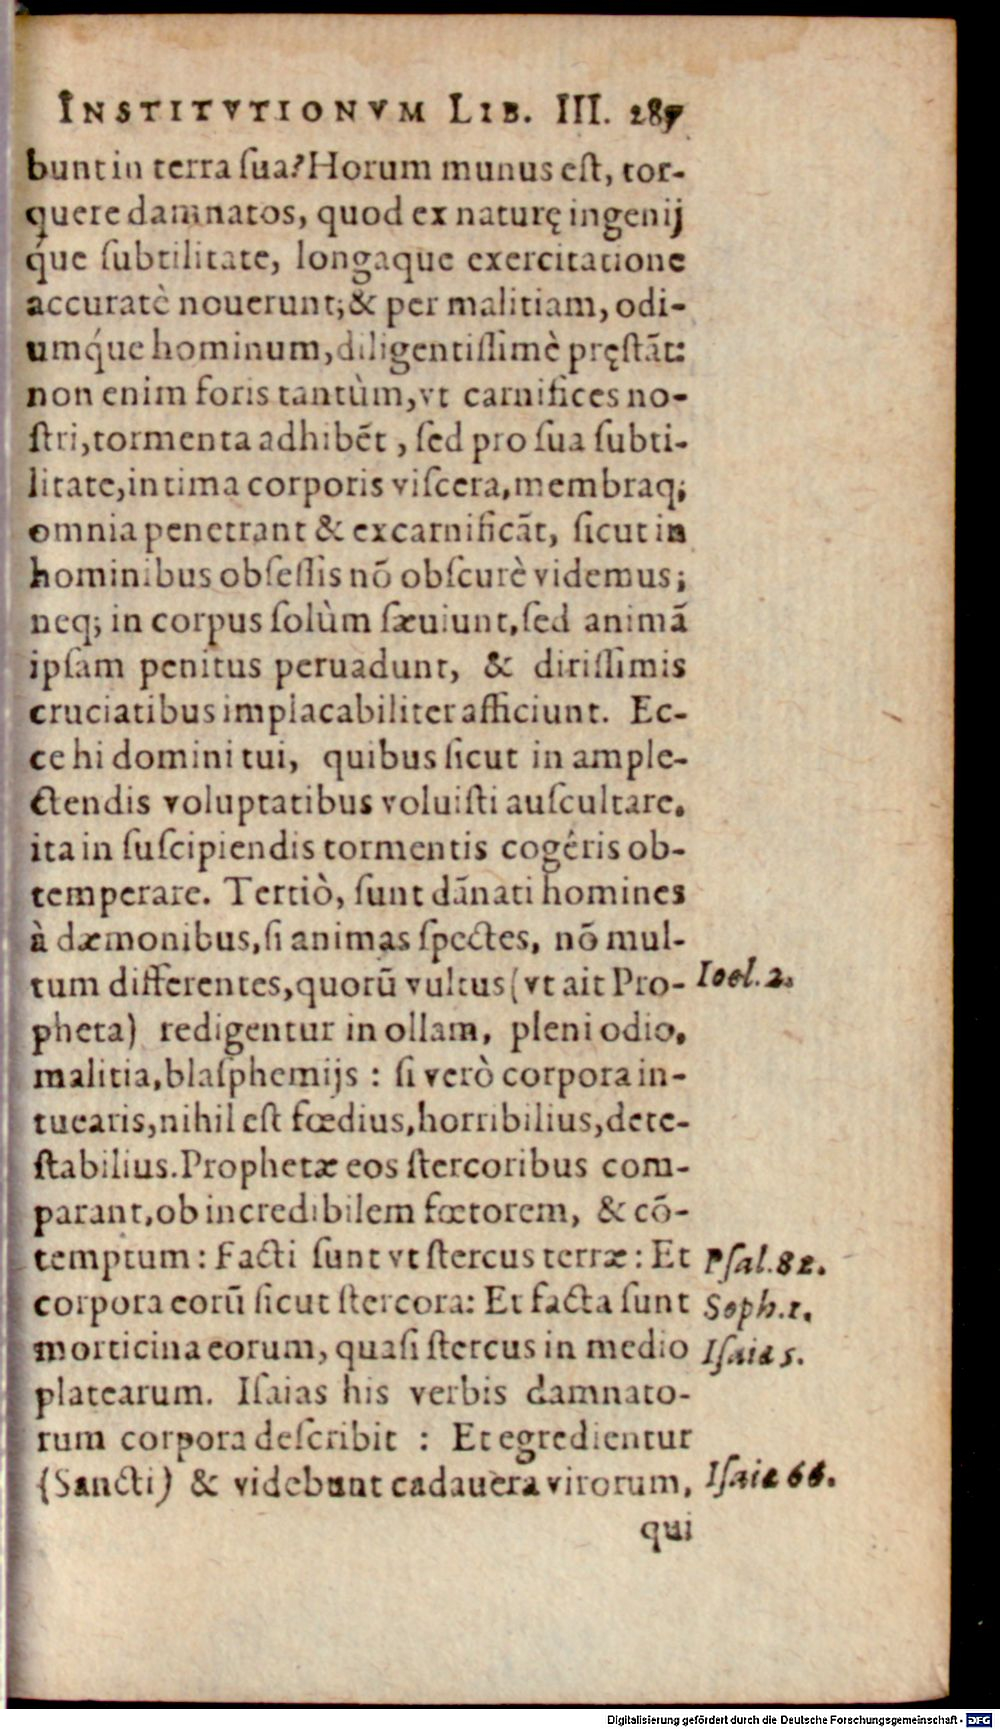 INSTITVTIONVM LIB. III. 287
bunt in terra ſua? Horum munus eſt, tor-
quere damnatos, quod ex naturę ingenij
q́ue ſubtilitate, longaque exercitatione
accuratè nouerunt; & per malitiam, odi-
umq́ue hominum, diligentiſſimè pręſtãt:
non enim foris tantùm, vt carnifices no-
ſtri, tormenta adhibẽt, ſed pro ſua ſubti-
litate, intima corporis viſcera, membraq;
omnia penetrant & excarnificãt, ſicut in
hominibus obſeſſis nõ obſcurè videmus;
neq; in corpus ſolùm ſæuiunt, ſed animã
ipſam penitus peruadunt, & diriſſimis
cruciatibus implacabiliter afficiunt. Ec-
ce hi domini tui, quibus ſicut in ample-
ctendis voluptatibus voluiſti auſcultare,
ita in ſuſcipiendis tormentis cogéris ob-
temperare. Tertiò, ſunt dãnati homines
à dæmonibus, ſi animas ſpectes, nõ mul-
tum differentes, quorũ vultus (vt ait Pro- Ioel. 2.
pheta) redigentur in ollam, pleni odio,
malitia, blaſphemijs : ſi verò corpora in-
tuearis, nihil eſt fœdius, horribilius, dete-
ſtabilius. Prophetæ eos ſtercoribus com-
parant, ob incredibilem fœtorem, & cõ-
temptum : Facti ſunt vt ſtercus terræ : Et Pſal. 82.
corpora eorũ ſicut ſtercora: Et facta ſunt Soph. 1.
morticina eorum, quaſi ſtercus in medio Iſaiæ 5.
platearum. Iſaias his verbis damnato-
rum corpora deſcribit : Et egredientur
(Sancti) & videbunt cadauera virorum, Iſaiæ 66.
qui
Digitalisierung gefördert durch die Deutsche Forschungsgemeinschaft - DFG